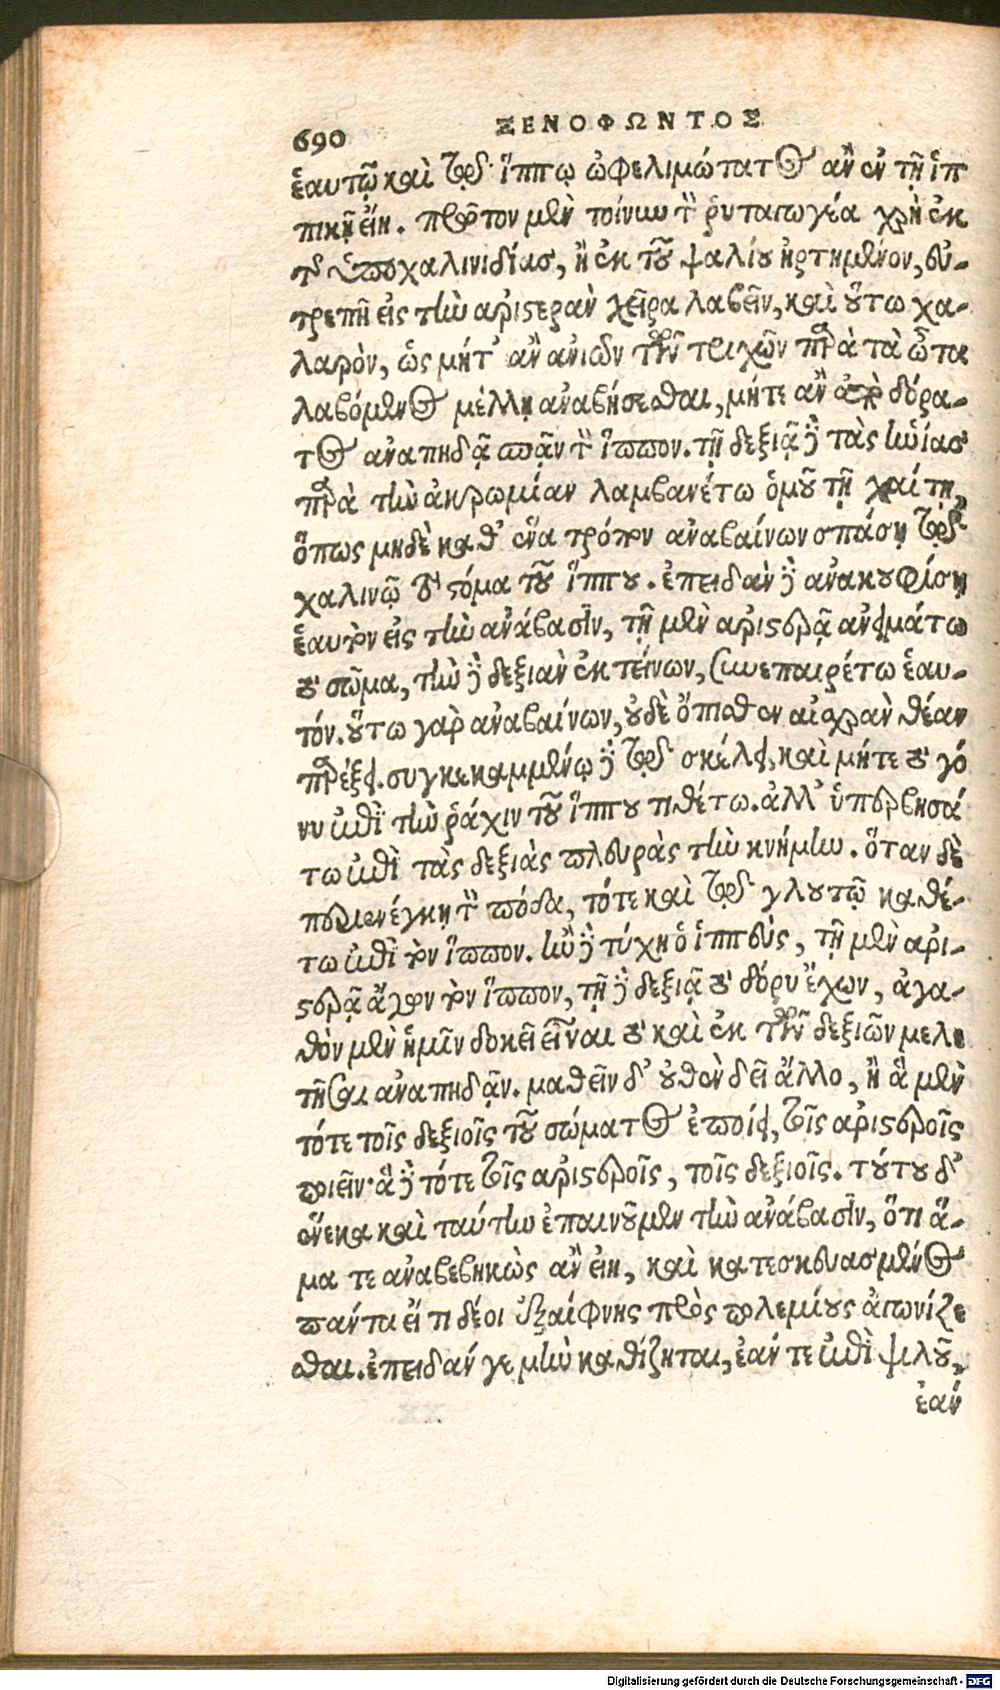 690 ΞΕΝΟΦΩΝΤΟΣ
ἑαυτῷ καὶ τῷ ἵππῳ ὠφελιμώτατος ἂν ἐν τῇ ἱπ
πικῇ εἴη. πρῶτον μὲν τοίνυν τὸν ῥυταγωγέα χρὴ ἐκ
τῆς ὑποχαλινιδίας, ἢ ἐκ τοῦ ψαλίου ἠρτημένον, εὐ-
τρεπῆ εἰς τὴν ἀριστερὰν χεῖρα λαβεῖν, καὶ οὕτω χα-
λαρὸν, ὡς μήτ' ἂν ἀνιὼν τῶν τριχῶν παρὰ τὰ ὦτα
λαβόμενος μέλλῃ ἀναβήσεσθαι, μήτε ἂν ἀπὸ δόρα-
τος ἀναπηδᾷ σπᾷν τὸν ἵππον. τῇ δεξιᾷ δὲ τὰς ἡνίας
παρὰ τὴν ἀκρωμίαν λαμβανέτω ὁμοῦ τῇ χαίτῃ,
ὅπως μηδὲ καθ' ἕνα τρόπον ἀναβαίνων σπάσῃ τῷ
χαλινῷ τὸ στόμα τοῦ ἵππου. ἐπειδὰν δὲ ἀνακουφίσῃ
ἑαυτὸν εἰς τὴν ἀνάβασιν, τῇ μὲν ἀριστερᾷ ἀνιμάτω
τὸ σῶμα, τὴν δὲ δεξιὰν ἐκτείνων, συνεπαιρέτω ἑαυ-
τόν. οὕτω γὰρ ἀναβαίνων, οὐδὲ ὄπισθεν αἰσχρὰν θέαν
παρέξει. συγκεκαμμένῳ δὲ τῷ σκέλει, καὶ μήτε τὸ γό
νυ ἐπὶ τὴν ῥάχιν τοῦ ἵππου τιθέτω. ἀλλ' ὑπερβησά
τω ἐπὶ τὰς δεξιὰς πλευρὰς τὴν κνήμην. ὅταν δὲ
περιενέγκῃ τὸν πόδα, τότε καὶ τῷ γλουτῷ καθέ-
τω ἐπὶ τὸν ἵππον. ἢν δὲ τύχῃ ὁ ἱππεὺς, τῇ μὲν ἀρι-
στερᾷ ἄγων τὸν ἵππον, τῇ δὲ δεξιᾷ τὸ δόρυ ἔχων, ἀγα-
θὸν μὲν ἡμῖν δοκεῖ εἶναι τὸ καὶ ἐκ τῶν δεξιῶν μελε
τῆσαι ἀναπηδᾷν. μαθεῖν δ' οὐθὲν δεῖ ἄλλο, ἢ ἃ μὲν
τότε τοῖς δεξιοῖς τοῦ σώματος ἐποίει, τοῖς ἀριστεροῖς
ποιεῖν· ἃ δὲ τότε τοῖς ἀριστεροῖς, τοῖς δεξιοῖς. τούτου δ'
ἕνεκα καὶ ταύτην ἐπαινοῦμεν τὴν ἀνάβασιν, ὅτι ἅ-
μα τε ἀναβεβηκὼς ἂν εἴη, καὶ κατεσκευασμένος
πάντα εἴ τι δέοι ἐξαίφνης πρὸς πολεμίους ἀγωνίζε
σθαι. ἐπειδάν γε μὴν καθίζηται, ἐάν τε ἐπὶ ψιλοῦ,
ἐάν
Digitalisierung gefördert durch die Deutsche Forschungsgemeinschaft - DFG